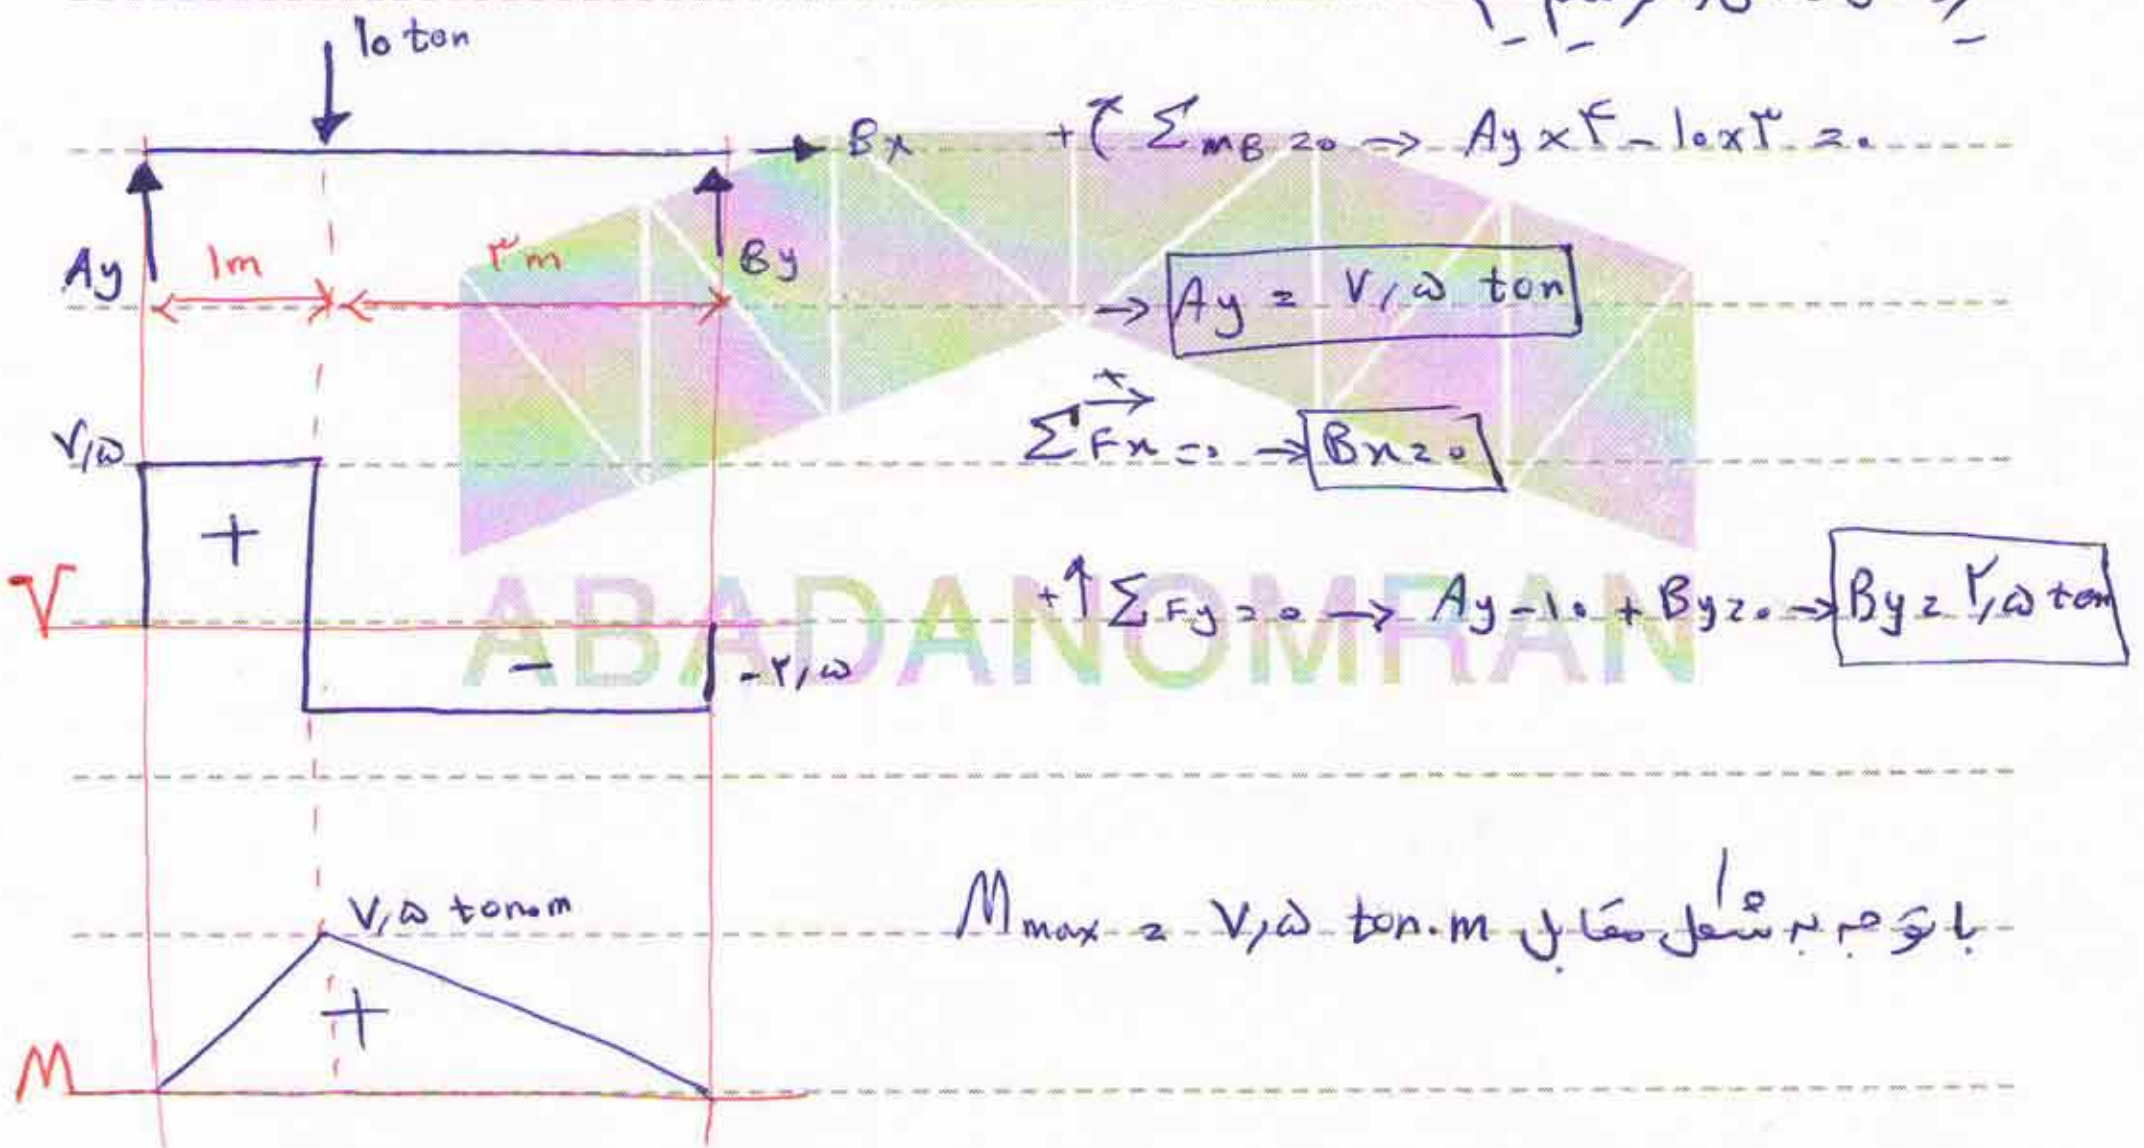 10 ton
Bx
+ ΣmB = 0 → Ay × ۴ - 10 × ۳ = 0
Ay
1m
۳m
By
→ Ay = ۷,۵ ton
+→ ΣFx = 0 → Bx = 0
۷,۵
+
V
+↑ ΣFy = 0 → Ay - 10 + By = 0 → By = ۲,۵ ton
-
-۲,۵
ABADANOMRAN
۷,۵ ton.m
با توجه به شکل مقابل Mmax = ۷,۵ ton.m
+
M